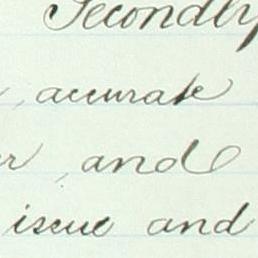 Secondly
, accurate
, and
issue and